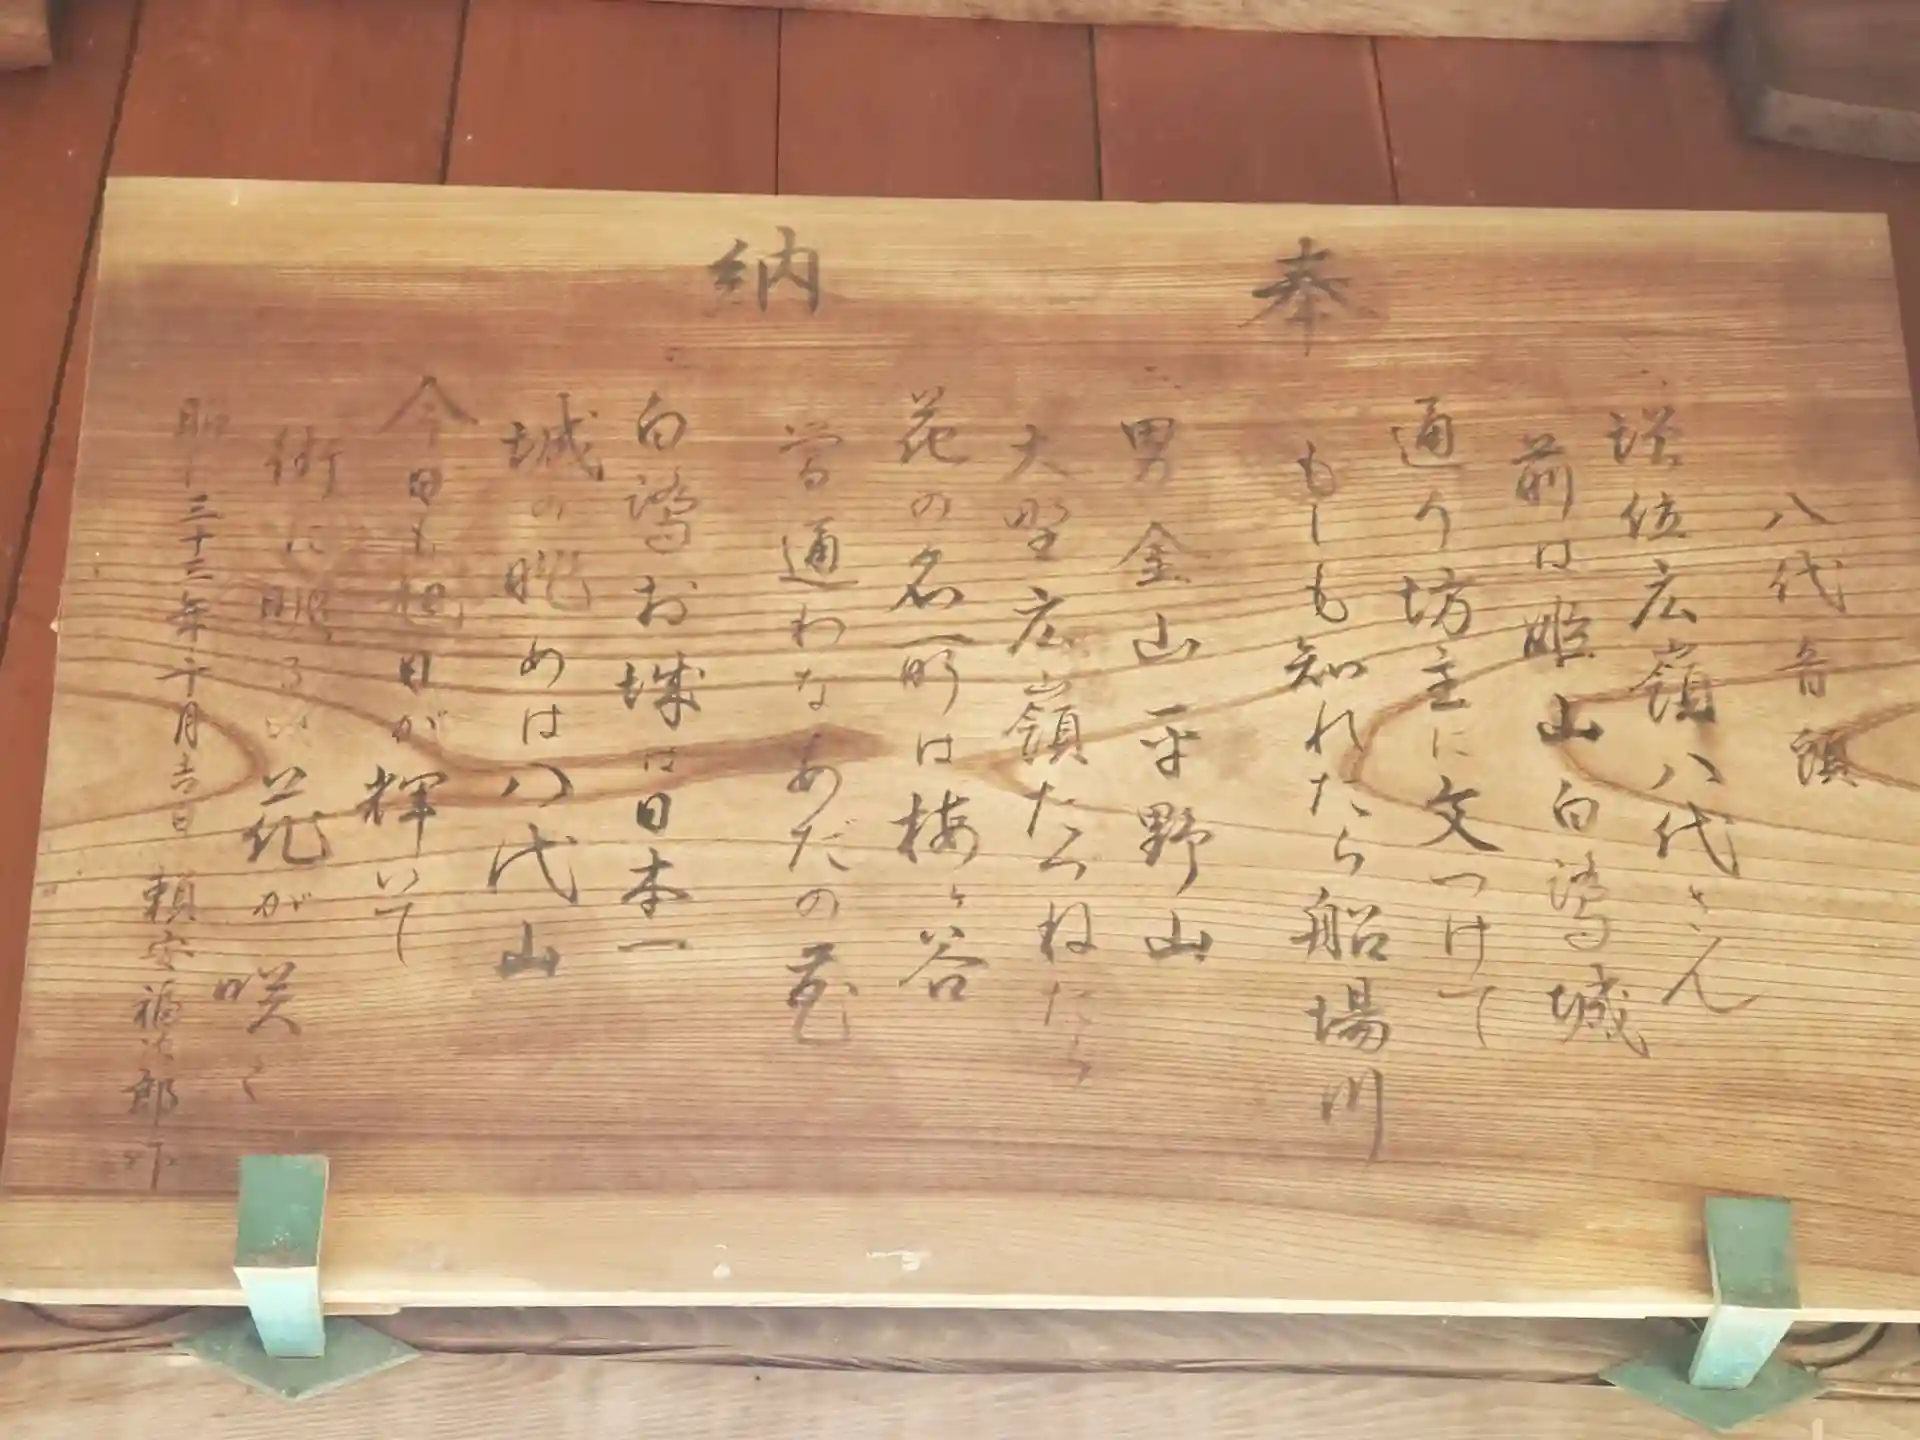 奉納
八代音頭
増位広嶺八代さん
前は姫山白鷺城
通り坊主に文つけて
もしも知れたら船場川
男金山平野山
大野広嶺たづねたら
花の名所は梅ヶ谷
当通わなあだの花
白鷺お城は日本一
城の眺めは八代山
今日も旭日が輝いて
街に明るい花が咲く
昭三十三年十月吉日 頼安福治郎作